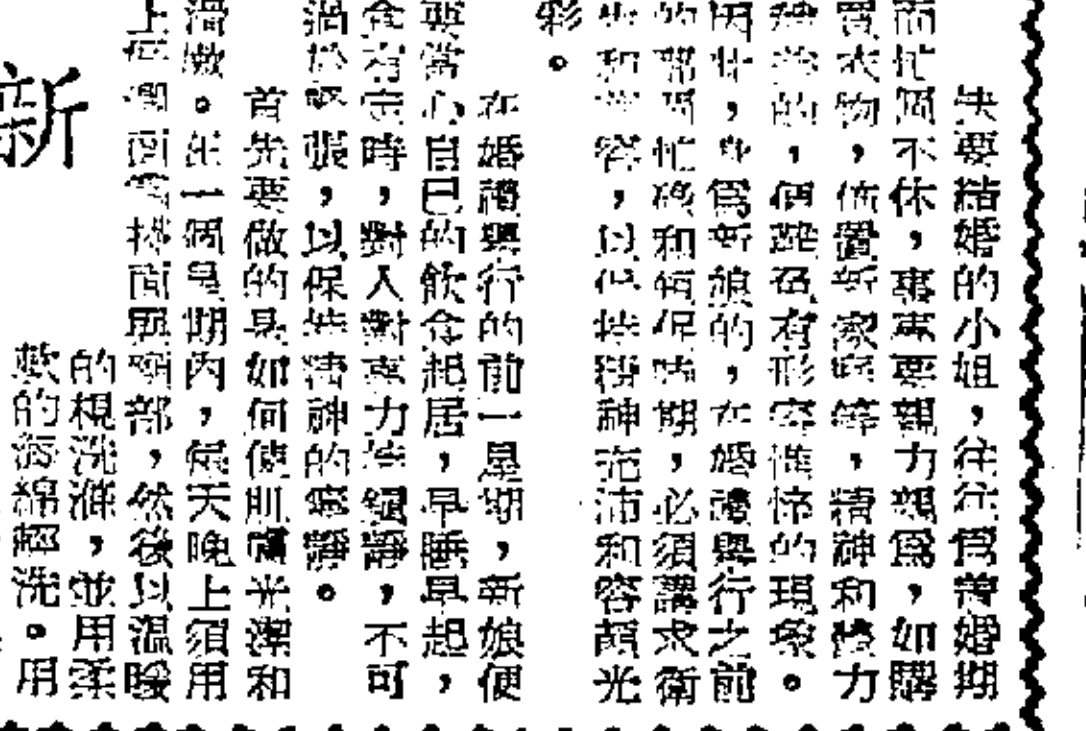 快要結婚的小姐，往往爲着婚期
而忙個不休，事事要親力親爲，如購
買衣物，佈置新家庭等，精神和體力
的，便難免有形容憔悴的現象。
因此，身爲新娘的，在婚禮舉行之前
的那個忙碌和短促時期，必須講求衛
生和美容，以保持精神充沛和容顏光
彩。
在婚禮舉行的前一星期，新娘便
要當心自己的飲食起居，早睡早起，
食有定時，對人對事力求鎮靜，不可
過於緊張，以保持精神的寧靜。
首先要做的是如何使肌膚光潔和
滑嫩。在一個星期內，每天晚上須用
上面霜搽面與頸部，然後以溫暖
的梘洗滌，並用柔
軟的海綿輕洗。用
新